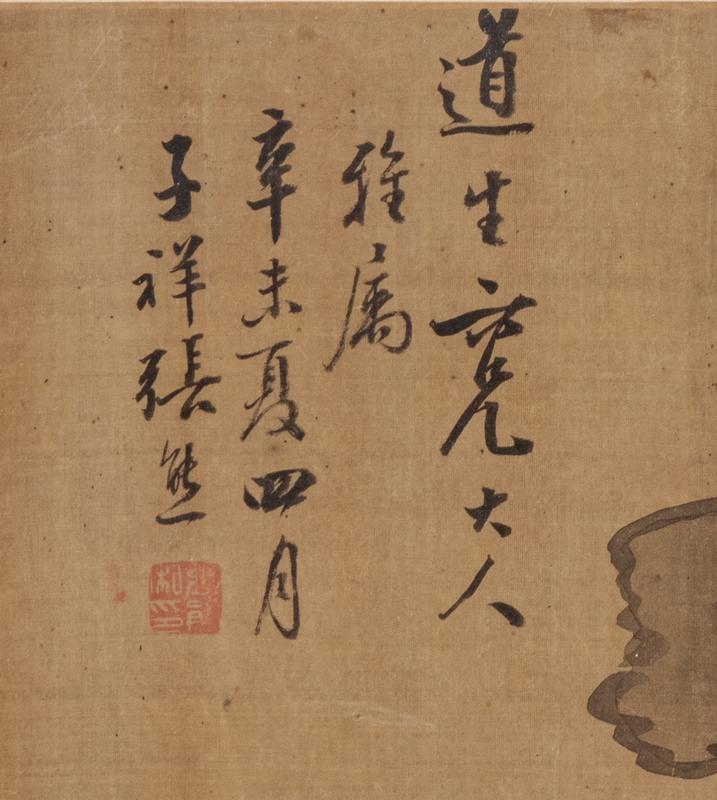 道生六兄大人
雅属
辛未夏四月
子祥張熊